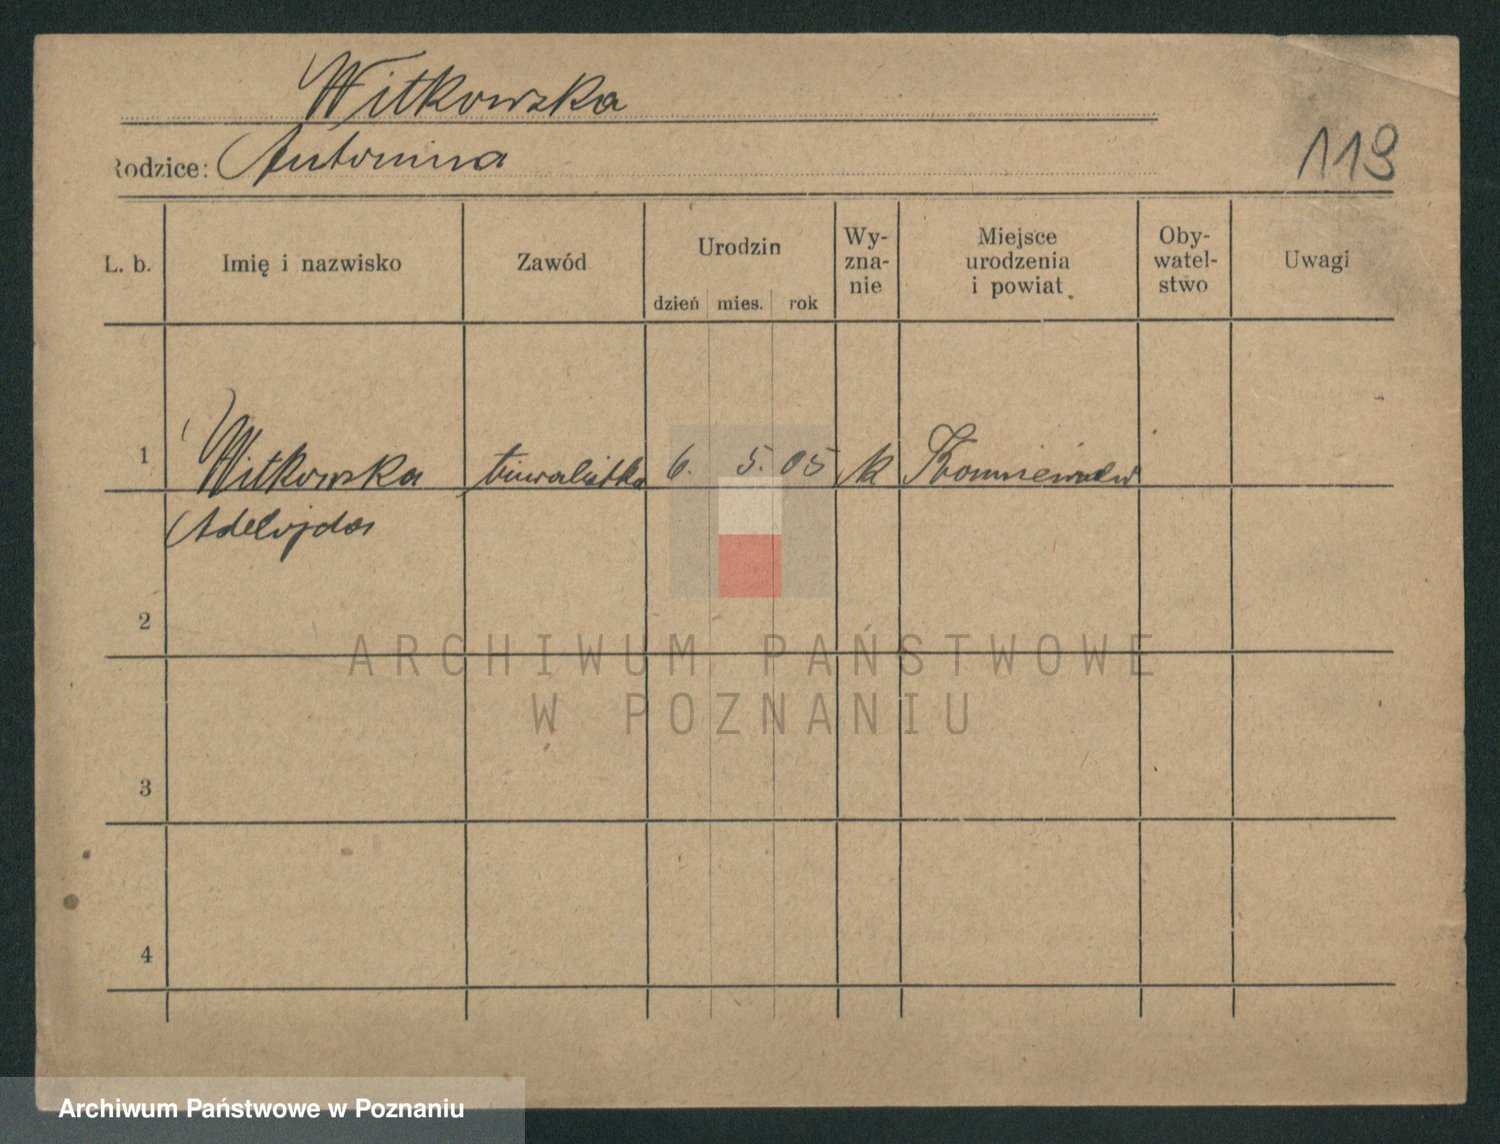 Witkowska
Rodzice: Antonina
119
L. b.
Imię i nazwisko
Zawód
Urodzin
dzień mies. rok
Wy-
zna-
nie
Miejsce
urodzenia
i powiat
Oby-
watel-
stwo
Uwagi
1 Witkowska 6. 5. 05 k
Adelajda
2
3
4
ARCHIWUM PAŃSTWOWE
W POZNANIU
Archiwum Państwowe w Poznaniu